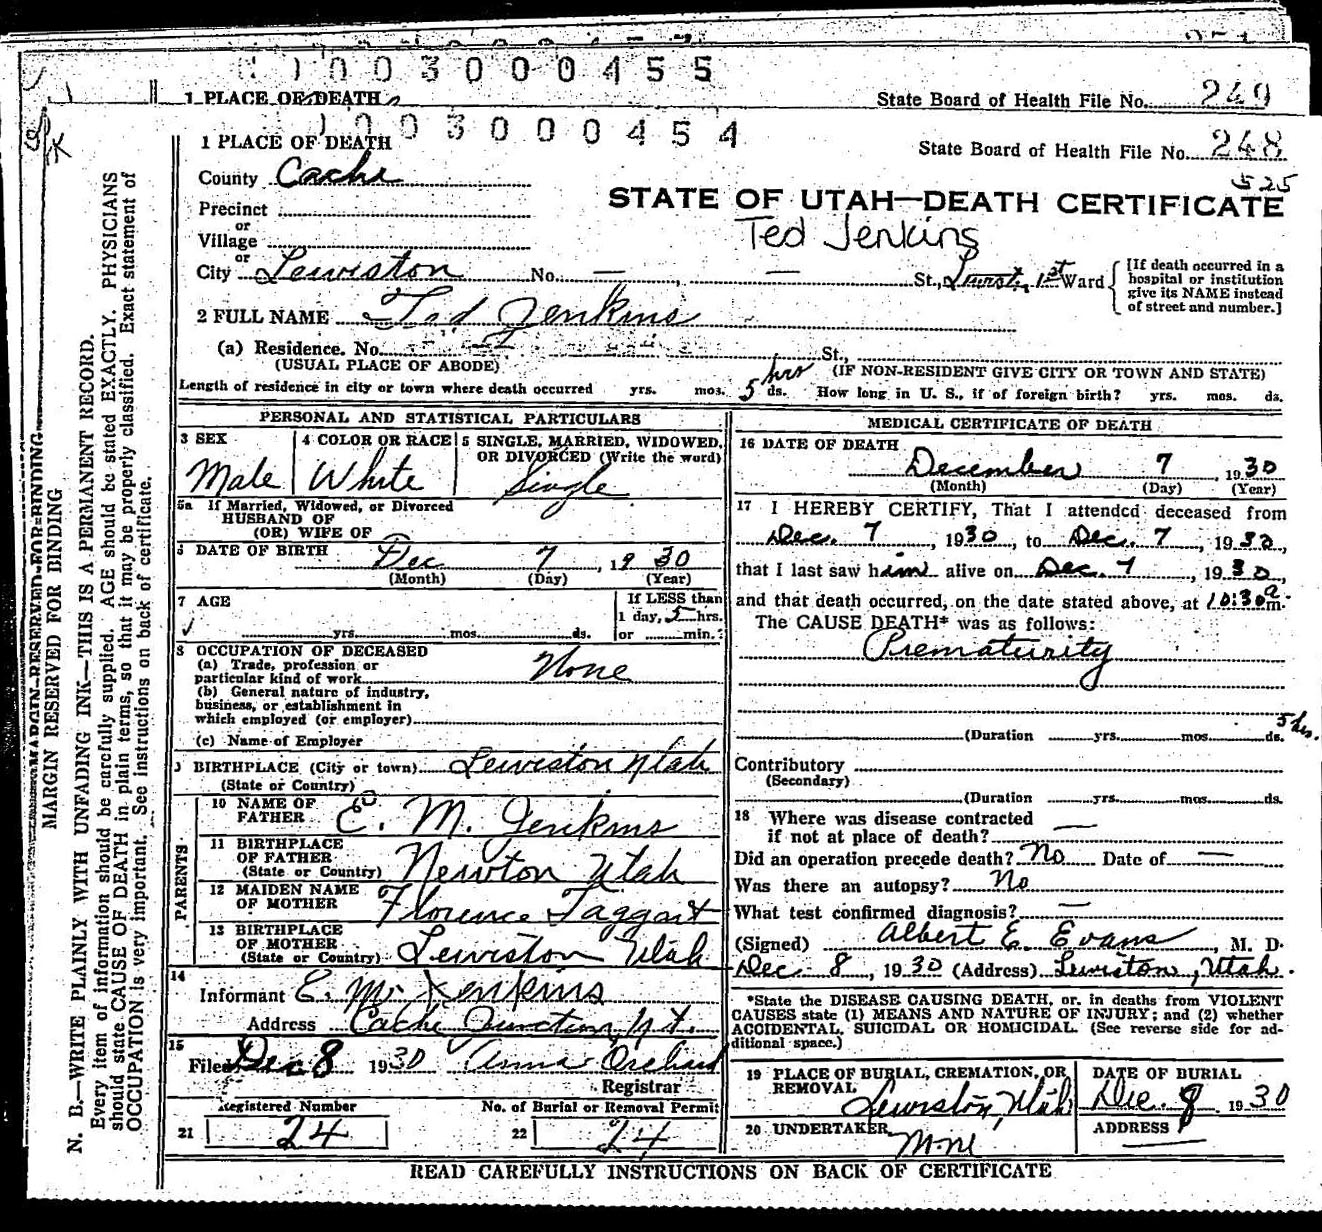 1 0 0 3 0 0 0 4 5 5
1 PLACE OF DEATH
State Board of Health File No. 249
1 0 0 3 0 0 0 4 5 4
1 PLACE OF DEATH
State Board of Health File No. 248
525
County Cache
STATE OF UTAH—DEATH CERTIFICATE
Precinct
or
Village
Ted Jenkins
or
City Lewiston No. — — St., Lewist. 1st Ward
[If death occurred in a hospital or institution give its NAME instead of street and number.]
2 FULL NAME Ted Jenkins
(a) Residence. No. St.,
(USUAL PLACE OF ABODE) (IF NON-RESIDENT GIVE CITY OR TOWN AND STATE)
Length of residence in city or town where death occurred yrs. mos. 5 hrs ds. How long in U. S., if of foreign birth? yrs. mos. ds.
PERSONAL AND STATISTICAL PARTICULARS
3 SEX Male
4 COLOR OR RACE White
5 SINGLE, MARRIED, WIDOWED, OR DIVORCED (Write the word) Single
5a If Married, Widowed, or Divorced
HUSBAND OF
(OR) WIFE OF
6 DATE OF BIRTH Dec 7, 1930
(Month) (Day) (Year)
7 AGE
yrs. mos. ds.
If LESS than
1 day, 5 hrs.
or min.?
8 OCCUPATION OF DECEASED
(a) Trade, profession or
particular kind of work None
(b) General nature of industry,
business, or establishment in
which employed (or employer)
(c) Name of Employer
9 BIRTHPLACE (City or town) Lewiston Utah
(State or Country)
PARENTS
10 NAME OF FATHER E. M. Jenkins
11 BIRTHPLACE OF FATHER (State or Country) Newton Utah
12 MAIDEN NAME OF MOTHER Florence Taggart
13 BIRTHPLACE OF MOTHER (State or Country) Lewiston Utah
14
Informant E. M. Jenkins
Address Cache Junction, Ut.
15
Filed Dec 8 1930 Anna
Registrar
Registered Number
21 24
No. of Burial or Removal Permit
22 24
MEDICAL CERTIFICATE OF DEATH
16 DATE OF DEATH
December 7, 1930
(Month) (Day) (Year)
17 I HEREBY CERTIFY, That I attended deceased from
Dec. 7, 1930, to Dec. 7, 1930,
that I last saw him alive on Dec. 7, 1930,
and that death occurred, on the date stated above, at 10:30 a m.
The CAUSE DEATH* was as follows:
Prematurity
(Duration yrs. mos. ds. 5 hrs.
Contributory
(Secondary)
(Duration yrs. mos. ds.
18 Where was disease contracted
if not at place of death? —
Did an operation precede death? No Date of —
Was there an autopsy? No
What test confirmed diagnosis? —
(Signed) Albert E. Evans, M. D.
Dec. 8, 1930 (Address) Lewiston, Utah.
*State the DISEASE CAUSING DEATH, or, in deaths from VIOLENT
CAUSES state (1) MEANS AND NATURE OF INJURY; and (2) whether
ACCIDENTAL, SUICIDAL OR HOMICIDAL. (See reverse side for ad-
ditional space.)
19 PLACE OF BURIAL, CREMATION, OR REMOVAL
Lewiston, Utah
DATE OF BURIAL
Dec. 8 1930
20 UNDERTAKER
ADDRESS
READ CAREFULLY INSTRUCTIONS ON BACK OF CERTIFICATE
MARGIN RESERVED FOR BINDING
MARGIN RESERVED FOR BINDING
N. B.—WRITE PLAINLY WITH UNFADING INK—THIS IS A PERMANENT RECORD.
Every item of information should be carefully supplied. AGE should be stated EXACTLY. PHYSICIANS
should state CAUSE OF DEATH in plain terms, so that it may be properly classified. Exact statement of
OCCUPATION is very important. See instructions on back of certificate.